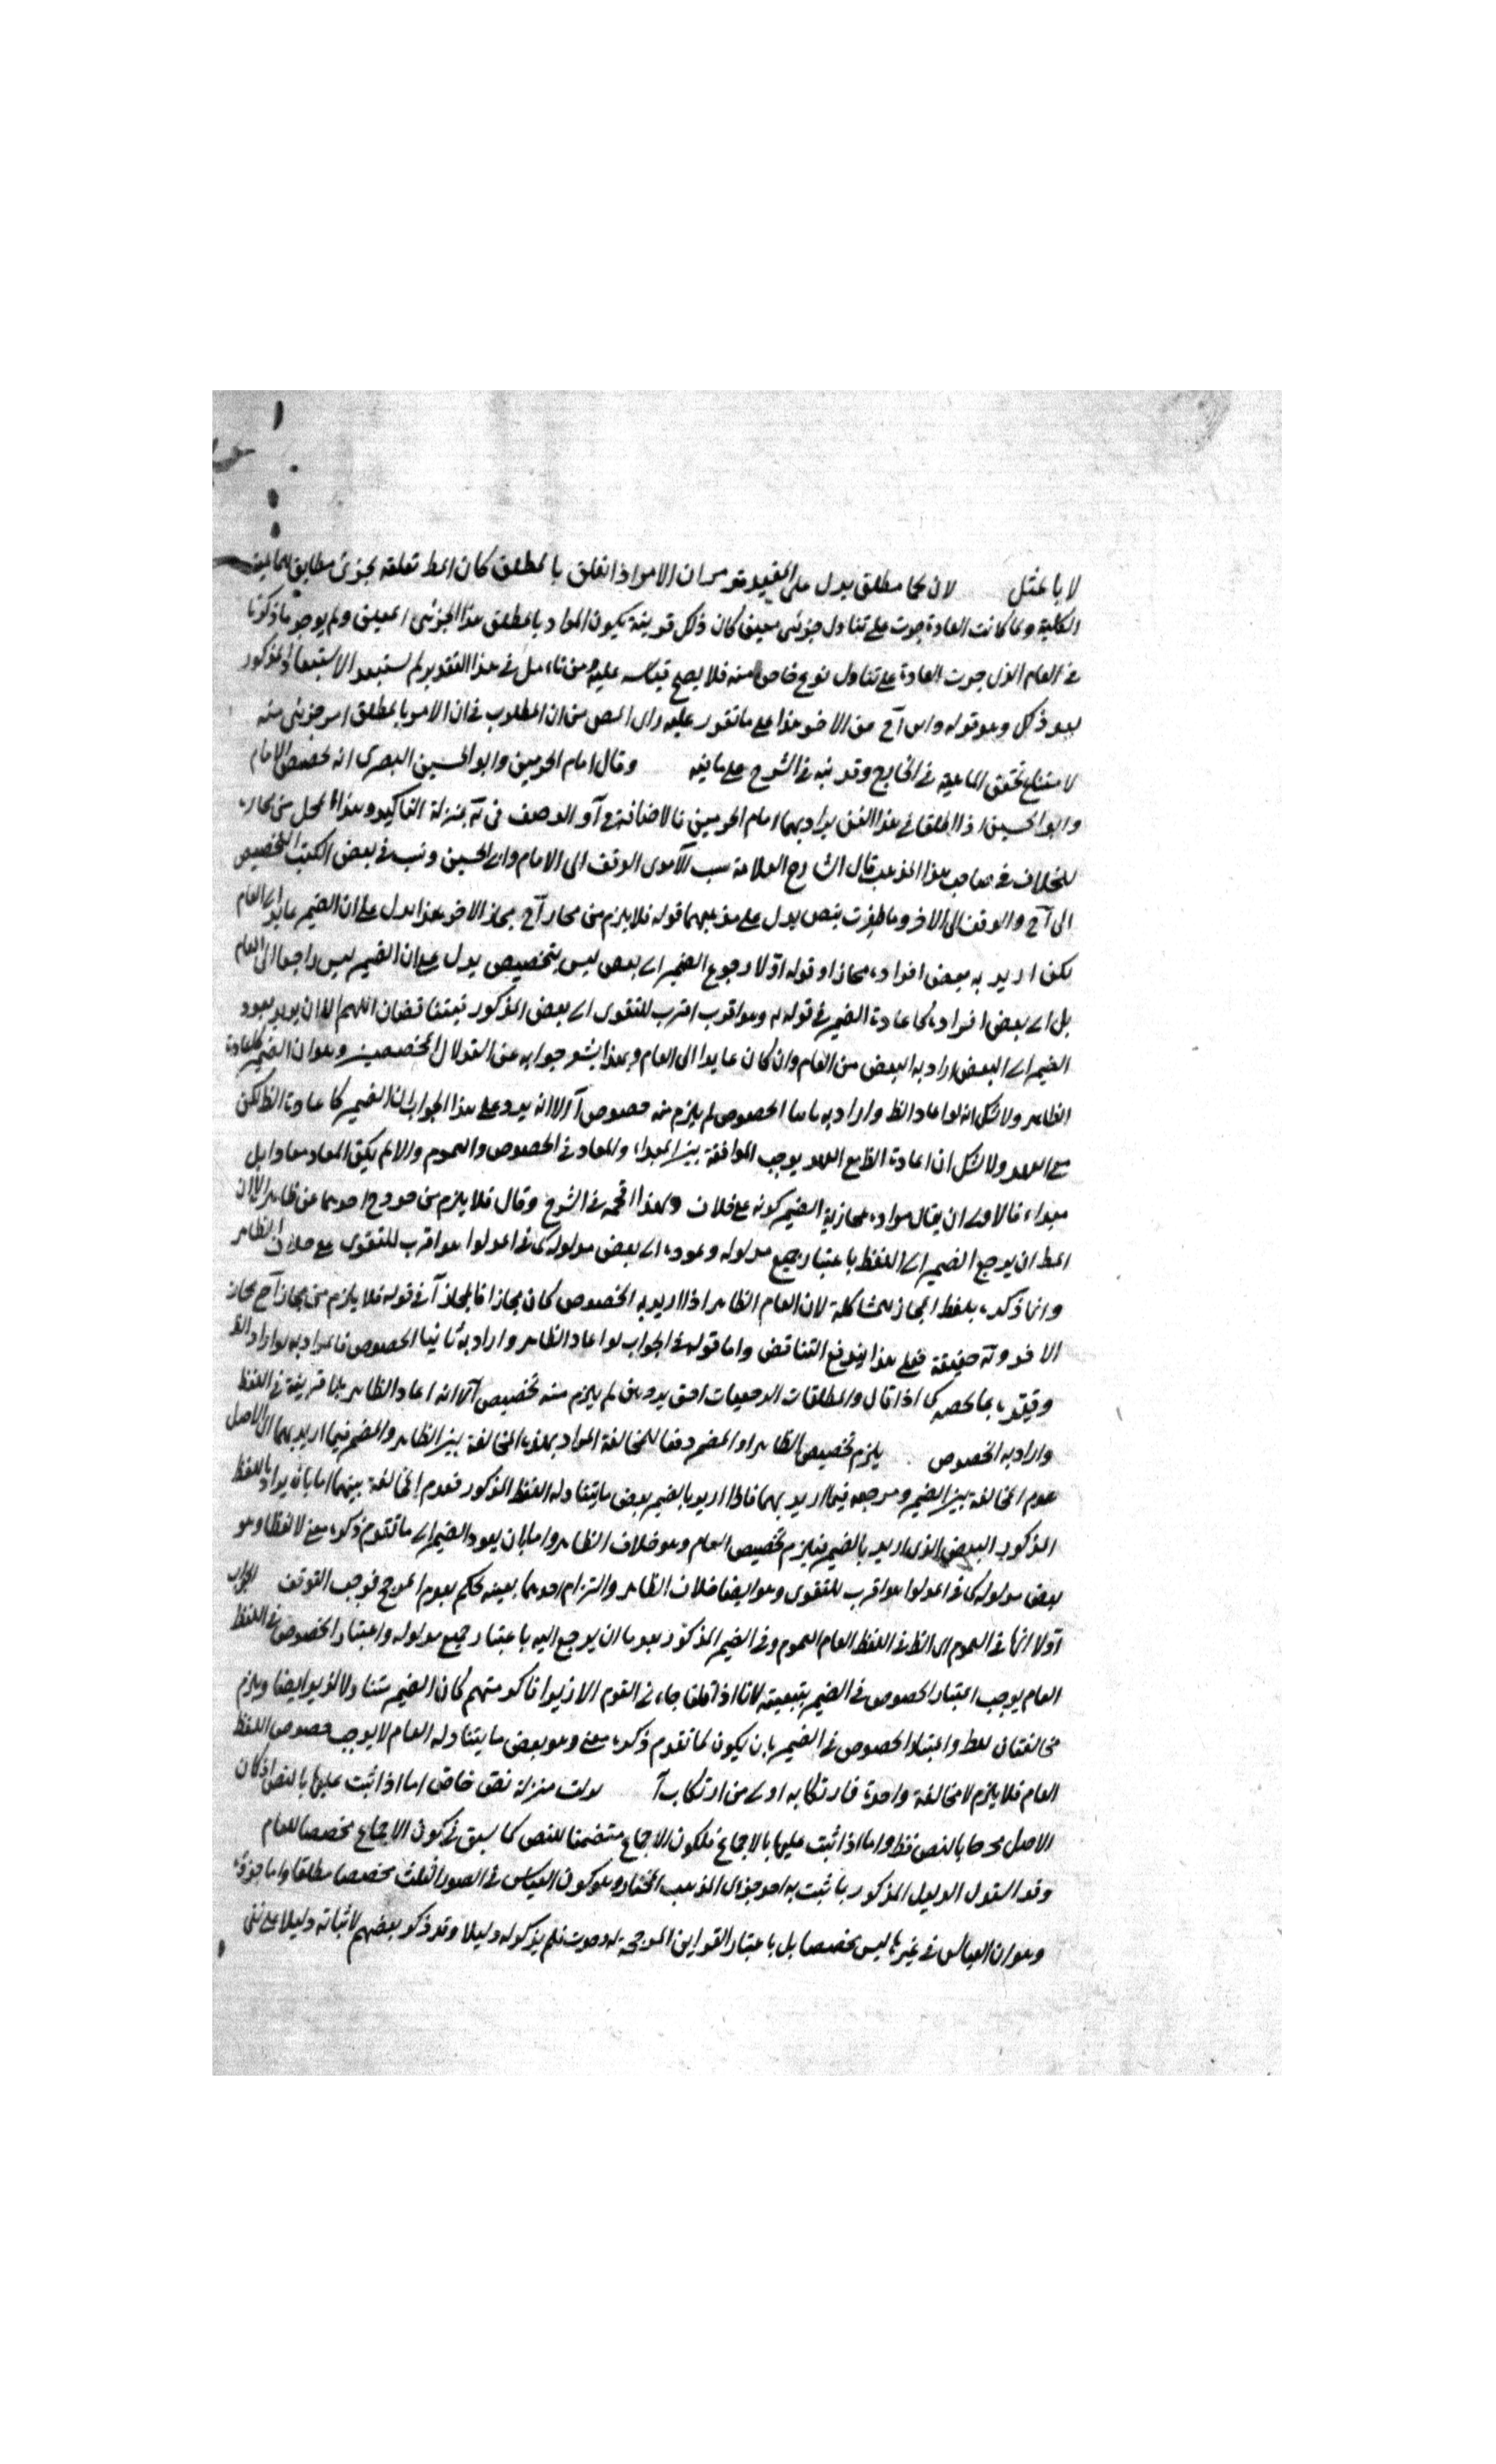 لا بالمثل لان كما مطلق يدل على المقيد قد ان الامر اذا تعلق بالمطلق كان المط تعلقه بجزئى مطابق للماهية
الكلية ولما كانت العادة جرت على تناول جزئى معين كان ذلك قرينة يكون المراد بالمطلق هذا الجزئى المعين ولم يوجد ما ذكرنا
فى العام الذى جرت العادة على تناول نوع خاص منه فلا يصح قياسه عليه ومن تامل فى هذا التقدير لم يستبعد الاستبعاد المذكور
بعد ذلك وهو قوله من الاخر هذا على ما تقرر عليه راى المص من ان المطلوب فى ان الامر بالمطلق امر جزئى منه
لامتناع تحقق الماهية فى الخارج وقد نبه فى الشرح على ما فيه وقال امام الحرمين وابو الحسين البصرى انه تخصيص الامام
وابو الحسين اذا اطلقا فى هذا الفن يراد بهما امام الحرمين فالاضافة فى آ والوصف فى ته بمنزلة التاكيد وهذا المحل من محار
للخلاف فى صاحب هذا المذهب قال الشارح العلامة نسب الآمدى الوقف الى الامام وابى الحسين ونسب فى بعض الكتب التخصيص
الى آح والوقف الى الاخر وما ظفرت بنص يدل على مذهبهما قوله فلا يلزم من مجاز آح مجاز الاخر هذا يدل على ان الضمير عايد الى العام
لكن اريد به بعض افراده مجازا وقوله اولا رجوع الضمير الى بعض ليس بتخصيص يدل على ان الضمير ليس راجعا الى العام
بل الى بعض افراده كاعادة الضمير فى قوله هو اقرب للتقوى الى بعض المذكور فيتناقضان اللهم الا ان يريد بعود
الضمير الى البعض ارادة البعض من العام وان كان عايدا الى العام وهذا يشعر جوابه عن استدلال المخصصين وهو ان الضمير كاعادة
الظاهر ولا شك انه لو اعاد الظ واراد به ثانيا الخصوص لم يلزم منه خصوص آ الا انه يرد على هذا الجواب ان الضمير كاعادة الظ لكن
مع العهد ولا شك ان اعادة الظ مع العهد يوجب الموافقة بين المبدا والمعاد فى الخصوص والعموم والا لم يكن المعاد معادا بل
مبداء فالاولى ان يقال مراده مجازية الضمير كونه على خلاف ولهذا اقحمه فى الشرح وقال فلا يلزم من خروج احدهما عن ظاهره لان
المط ان يرجع الضمير الى اللفظ باعتبار جميع مدلوله وعوده الى بعض مدلوله كما فى اعدلوا هو اقرب للتقوى على خلاف الظاهر
وانما ذكره بلفظ المجاز للمشاكلة لان العام الظاهر اذا اريد به الخصوص كان مجازا فالمجاز آ فى قوله فلا يلزم من مجاز آح مجاز
الاخر وته حقيقة فعلى هذا يندفع التناقض واما قوله فى الجواب لو اعاد الظاهر واراد به ثانيا الخصوص فالمراد به لو اراد الظ
وقيده بما يخصه كما اذا قال والمطلقات الرجعيات احق بردهن لم يلزم منه تخصيص آ لا انه اعاد الظاهر بلا قرينة فى اللفظ
واراد به الخصوص يلزم تخصيص الظاهر او المضمر دفعا للمخالفة المراد بهذه المخالفة بين الظاهر والمضمر فيما اريد بهما لان الاصل
عدم المخالفة بين الضمير ومرجعه فيما اريد بهما فاذا اريد بالضمير بعض ما يتناوله اللفظ المذكور فعدم المخالفة بينهما اما بان يراد باللفظ
المذكور البعض الذى اريد بالضمير فيلزم تخصيص العام وهو خلاف الظاهر واما بان يعود الضمير الى ما تقدم ذكره معنى لا لفظا وهو
بعض مدلوله كما فى اعدلوا هو اقرب للتقوى وهو ايضا خلاف الظاهر والتزام احدهما بعينه تحكم بعدم المرجح فوجب التوقف الجواب
اولا انها فى العموم اى الظ فى اللفظ العام العموم وفى الضمير المذكور بعد ما ان يرجع اليه باعتبار جميع مدلوله واعتبار الخصوص فى اللفظ
العام يوجب اعتبار الخصوص فى الضمير بتبعيته لانا اذا قلنا جاءنى القوم الا زيدا فاكرمتهم كان الضمير متناولا لزيد ايضا ويلزم
مخالفتان للظ واعتبار الخصوص فى الضمير بان يكون لما تقدم ذكره معنى وهو بعض ما يتناوله العام لا يوجب خصوص اللفظ
العام فلا يلزم الا مخالفة واحدة فارتكابه اولى من ارتكاب آ نزلت منزلة نص خاص اما اذا ثبت عليها بالنص اذ كان
الاصل مخرجا بالنص فظ واما اذا ثبت عليها بالاجماع فلكون الاجماع متضمنا للنص كما سبق فى كون الاجماع مخصصا للعام
وقد استدل الدليل المذكور ما ثبت به احد جزاى المذهب المختار وهو كون القياس فى الصور الثلث مخصصا مطلقا واما جزؤه
وهو ان القياس فى غيرها ليس مخصصا بل باعتبار القراين المرجحة له وجدت فلم يذكر له دليلا وقد ذكر بعضهم لاثباته دليلا على نفى